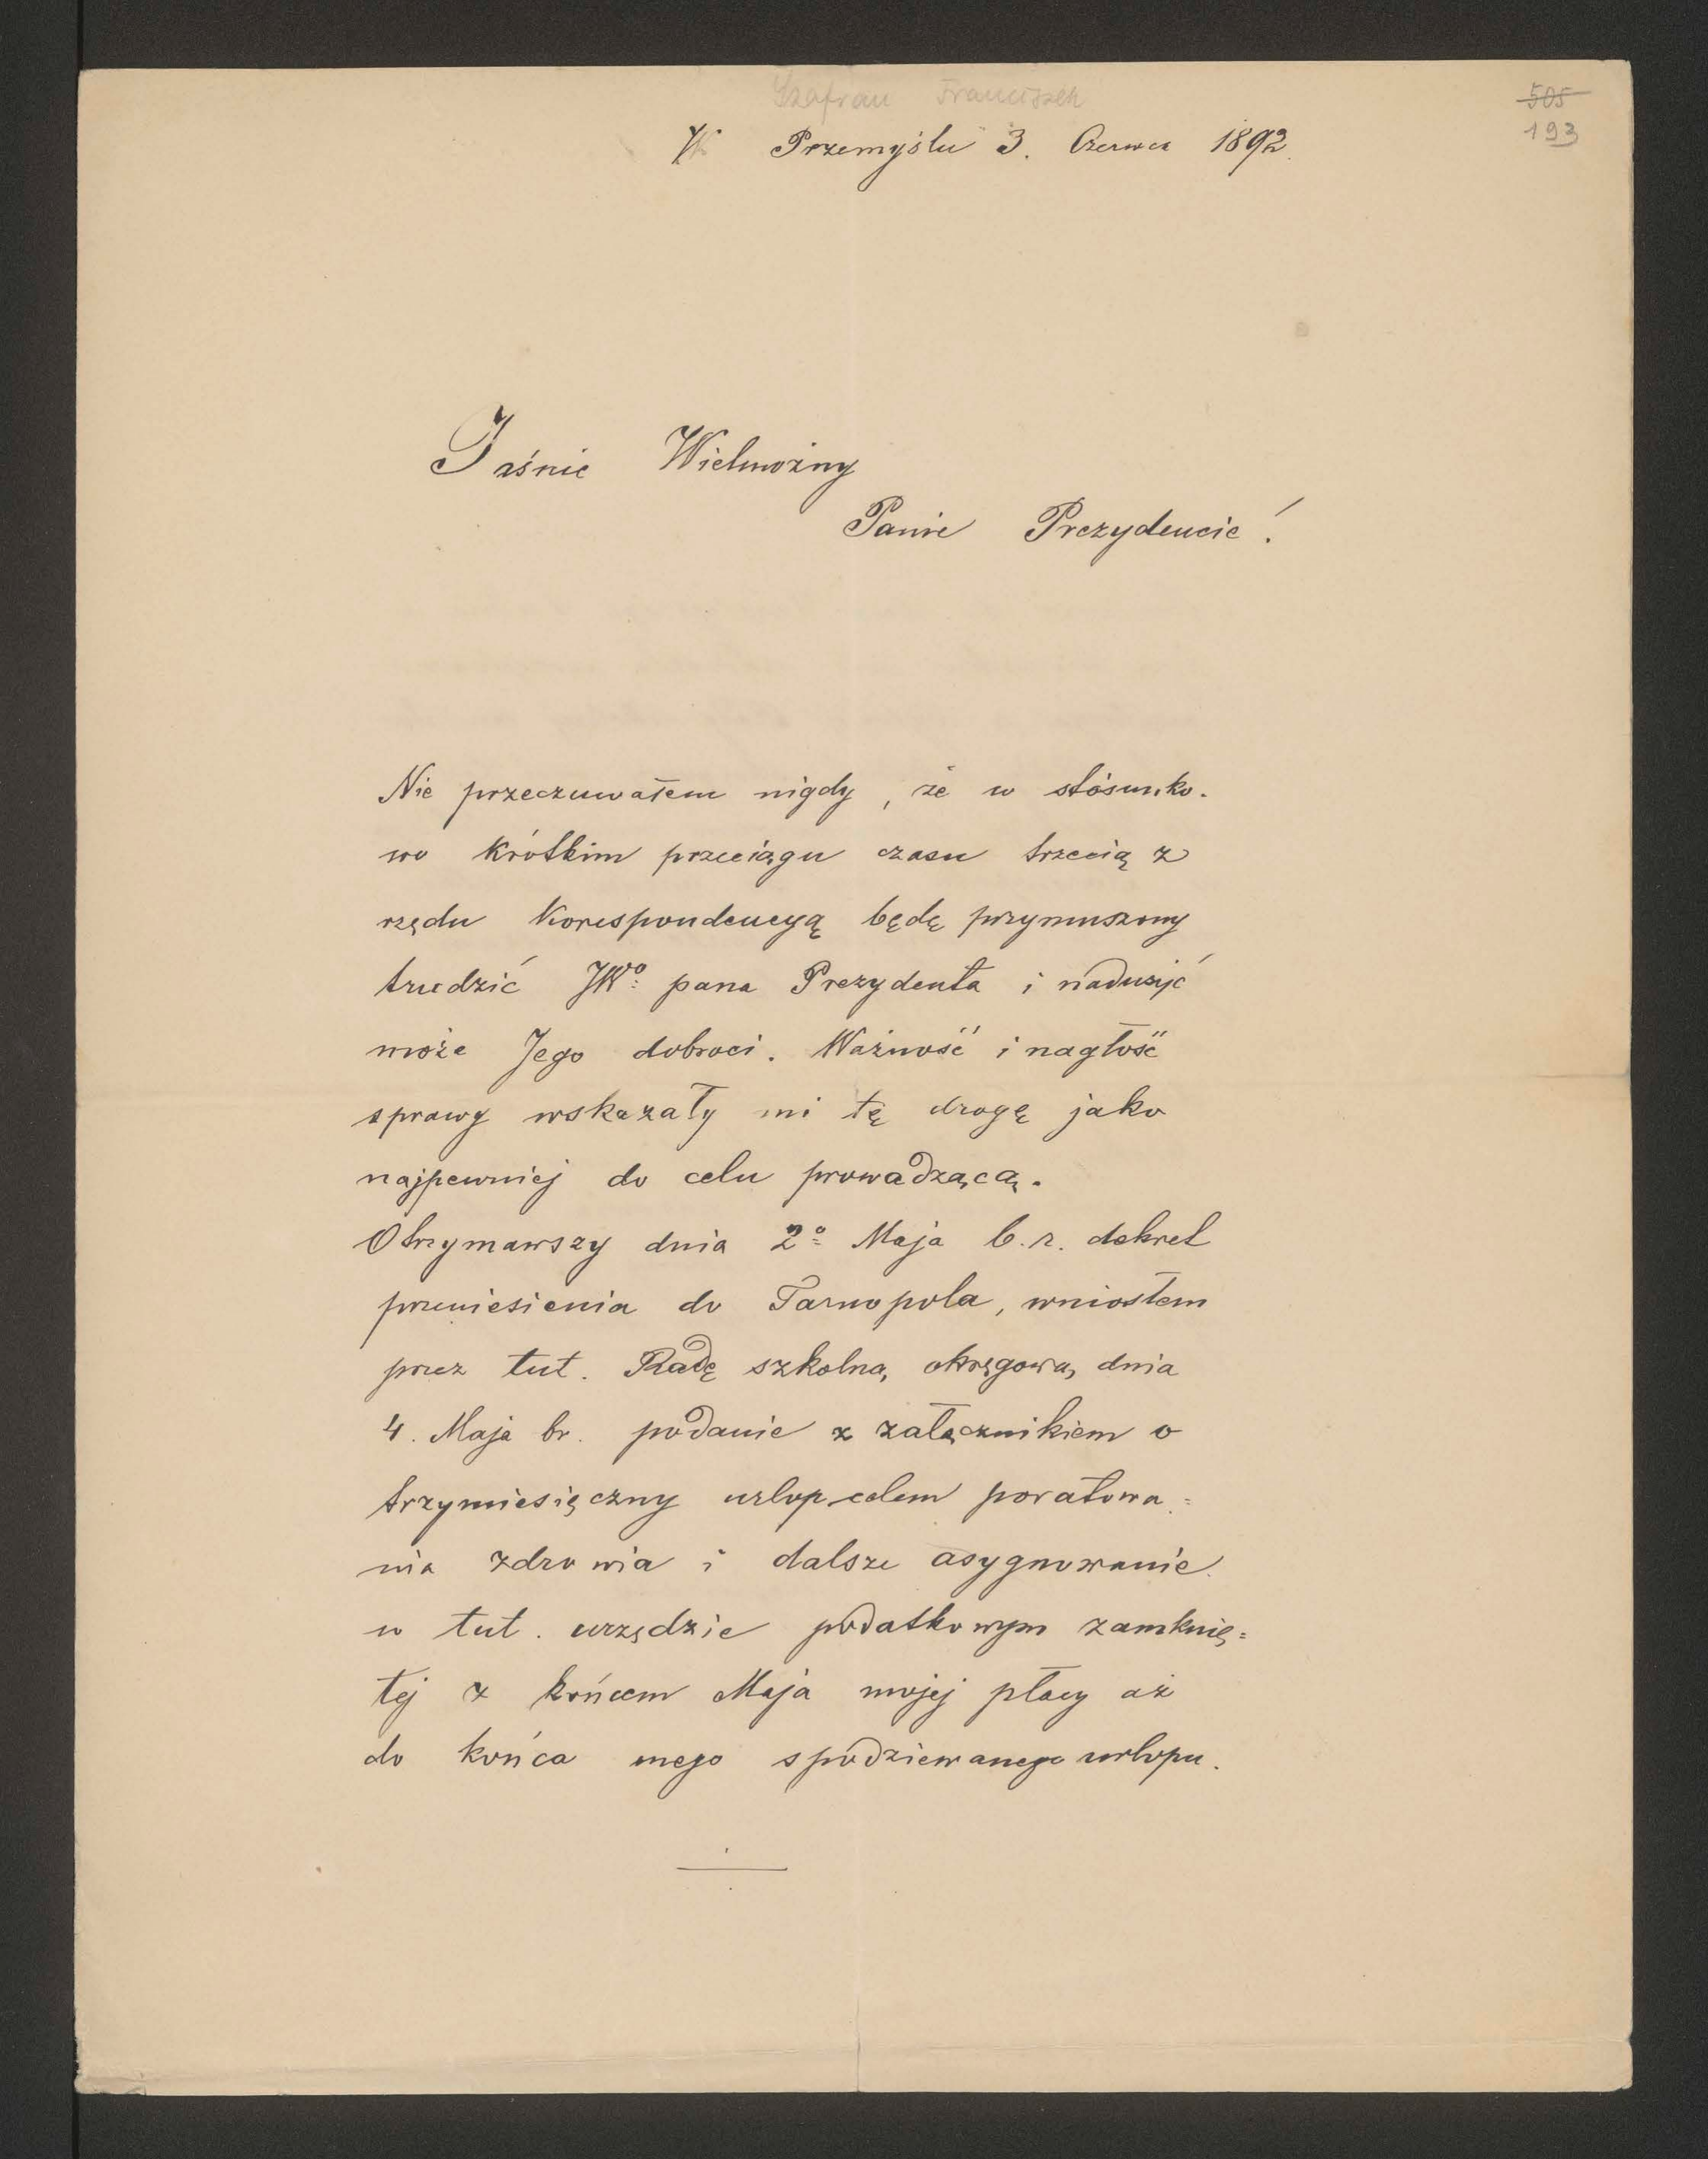 Szafran Franciszek
505
193
W Przemyślu 3. Czerwca 1892.
Jaśnie Wielmożny
Panie Prezydencie!
Nie przeczuwałem nigdy, że w stósunko-
wo krótkim przeciągu czasu trzecią z
rzędu korespondencyą będę przymuszony
trudzić JWo: pana Prezydenta i nadużyć
może Jego dobroci. Ważność i nagłość
sprawy wskazały mi tę drogę jako
najpewniej do celu prowadzącą.
Otrzymawszy dnia 2o: Maja b. r. dekret
przeniesienia do Tarnopola, wniosłem
przez tut. Radę szkolną okręgową dnia
4. Maja br. podanie z załącznikiem o
trzymiesięczny urlop celem poratowa=
nia zdrowia i dalsze asygnowanie
w tut. urzędzie podatkowym zamknię=
tej z końcem Maja mojej płacy aż
do końca mego spodziewanego urlopu.